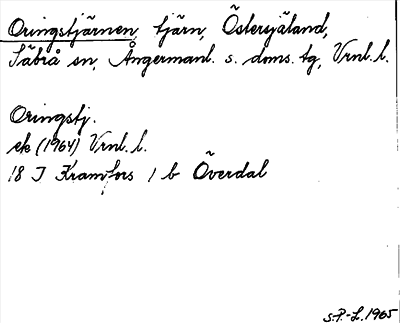 Oringstjärnen, tjärn, Östersjäland,
Säbrå sn, Ångermanl. s. doms. tg, Vrnl. l.
Oringstj.
ek (1964) Vrnl. l.
18 I Kramfors 1 b Överdal
S.P.-L. 1965